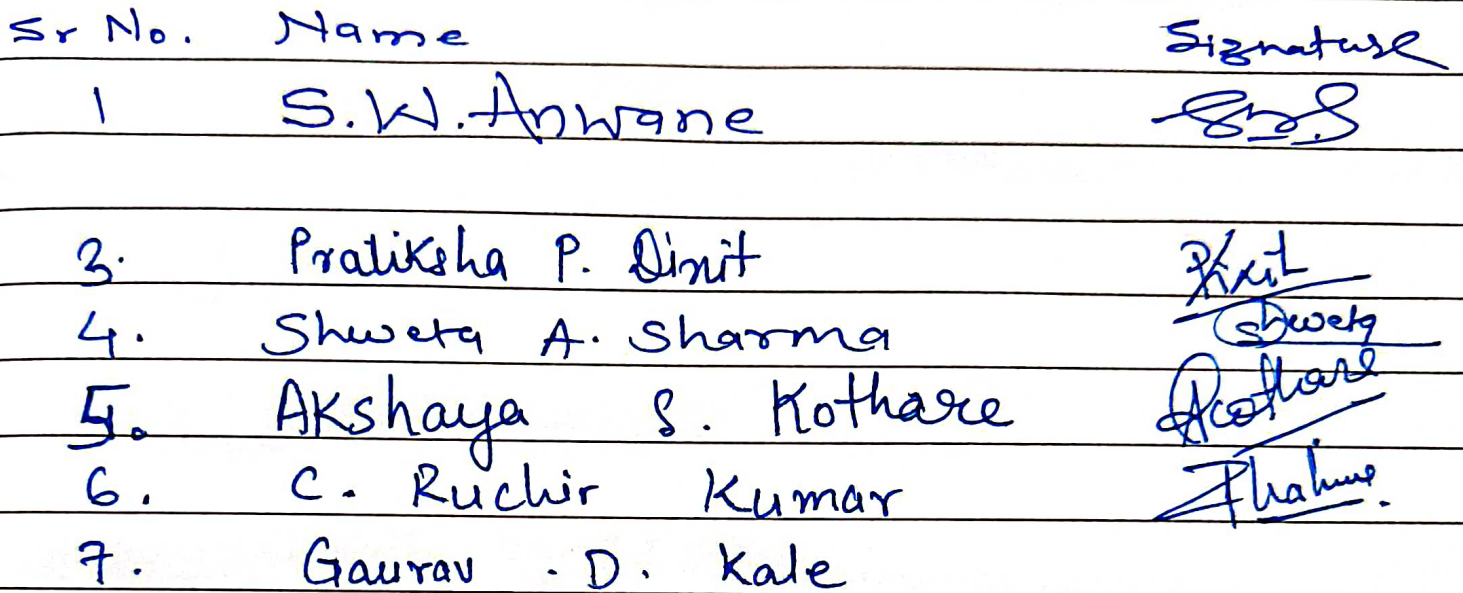 Sr No. Name Signature
1 S.W. Anwane
3. Pratiksha P. Dixit Dixit
4. Shweta A. Sharma Shweta
5. Akshaya S. Kothare Akothare
6. C. Ruchir Kumar
7. Gaurav . D. Kale